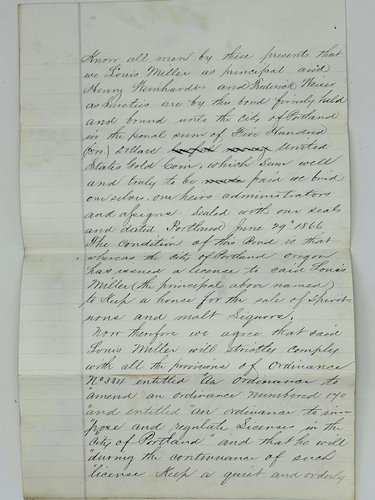 Know all men by these presents that
we Louis Miller as principal and
Henry Wernhardt and Frederick Weser
as Sureties are by this bond firmly held
and bound unto the City of Portland
in the penal sum of Five Hundred
Dollars United
States Gold Coin, which Sum well
and truly to be paid we bind
our selves, our heirs administrators
and assigns. Sealed with our seals
and dated Portland June 29th 1866
The Condition of this Bond is that
whereas the City of Portland oregon
has issued a license to said Louis
Miller (the principal above named)
to Keep a house for the sale of Spirit-
uous and malt Liquors.
Now therefore we agree that said
Louis Miller will strictly comply
with all the provisions of Ordinance
No 334 entitled "An Ordinance to
"amend an ordinance numbered 170
"and entitled "An ordinance to im-
"pose and regulate Licenses in the
City of Portland" and that he will
"during the continuance of such
"license Keep a quiet and orderly